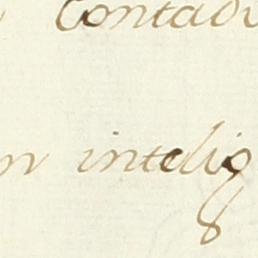 Contadu
n intelig